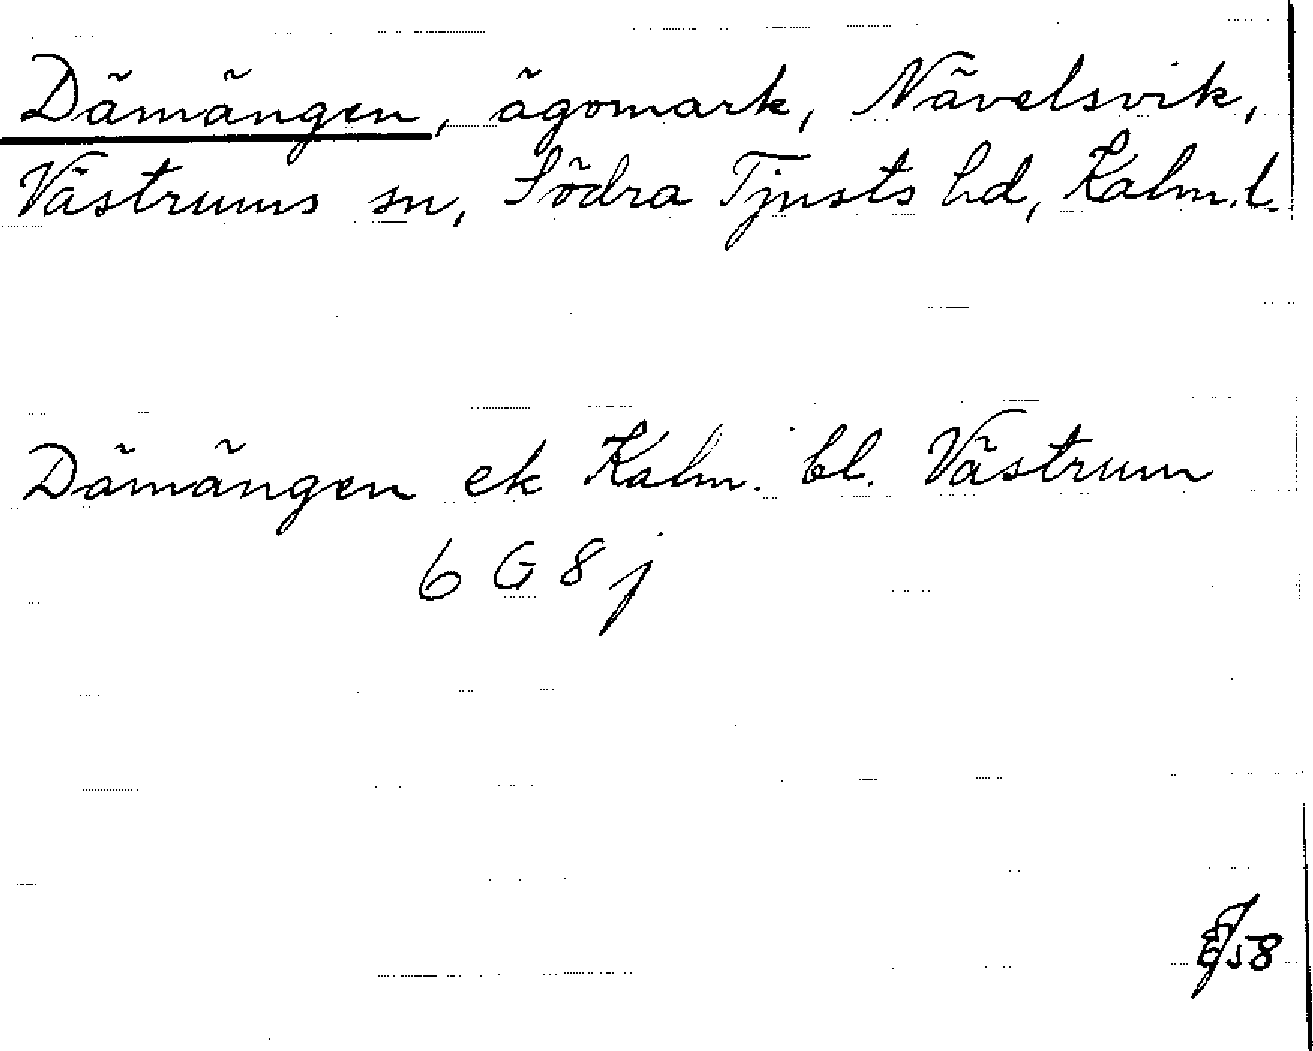 Dämängen, ägomark, Nävelsvik,
Västrums sn, Södra Tjusts hd, Kalm.l.
Dämängen ek Kalm. bl. Västrum
6 G 8 j
58